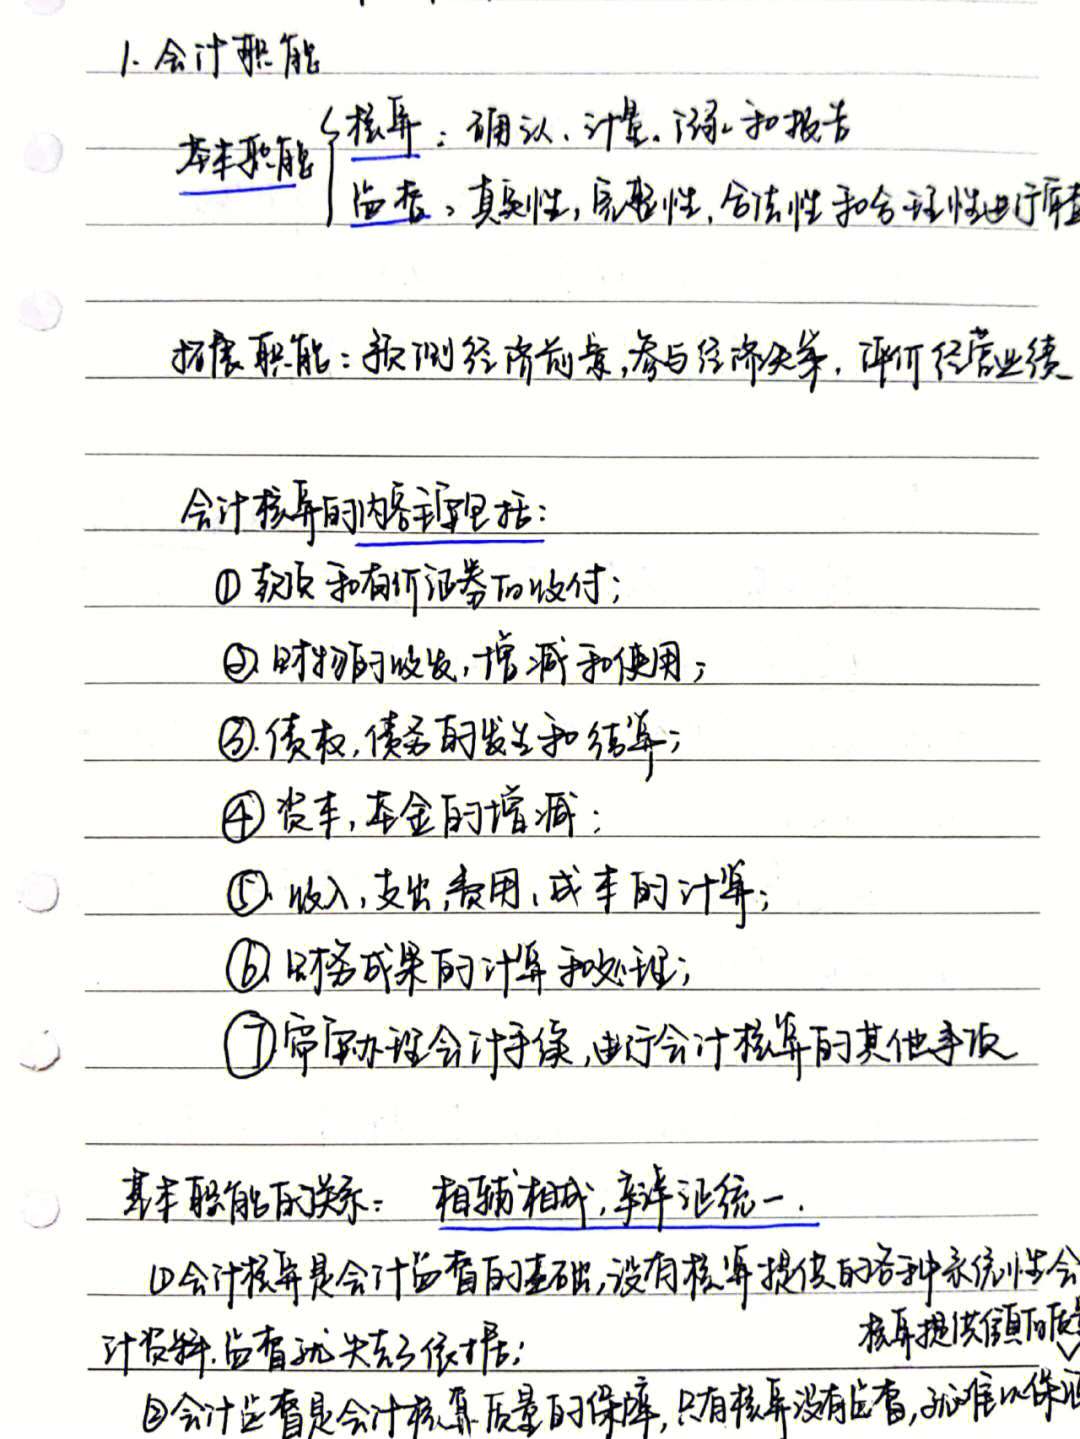 1. 会计职能
基本职能
核算：确认、计量、记录和报告
监督：真实性，完整性，合法性和合理性进行审查
拓展职能：预测经济前景，参与经济决策，评价经营业绩
会计核算的内容主要包括：
①款项和有价证券的收付；
②.财物的收发，增减和使用；
③.债权，债务的发生和结算；
④资本，基金的增减；
⑤.收入，支出，费用，成本的计算；
⑥财务成果的计算和处理；
⑦需要办理会计手续，进行会计核算的其他事项
基本职能的联系：相辅相成，辛辩证统一.
①会计核算是会计监督的基础，没有核算提供的各种系统性会
计资料，监督就失去了依据；
核算提供信息的质量
②会计监督是会计核算质量的保障，只有核算没有监督，就难以保证